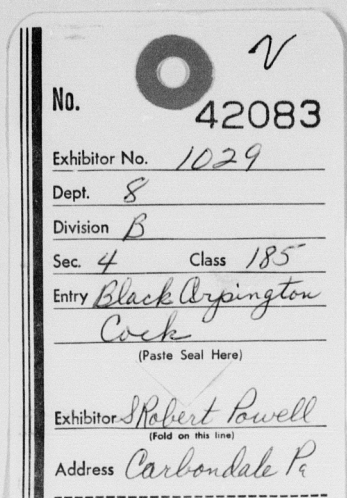 N
No.
42083
Exhibitor No. 1029
Dept. 8
Division B
Sec. 4 Class 185
Entry Black Orpington
Cock
(Paste Seal Here)
Exhibitor S Robert Powell
(Fold on this line)
Address Carbondale Pa